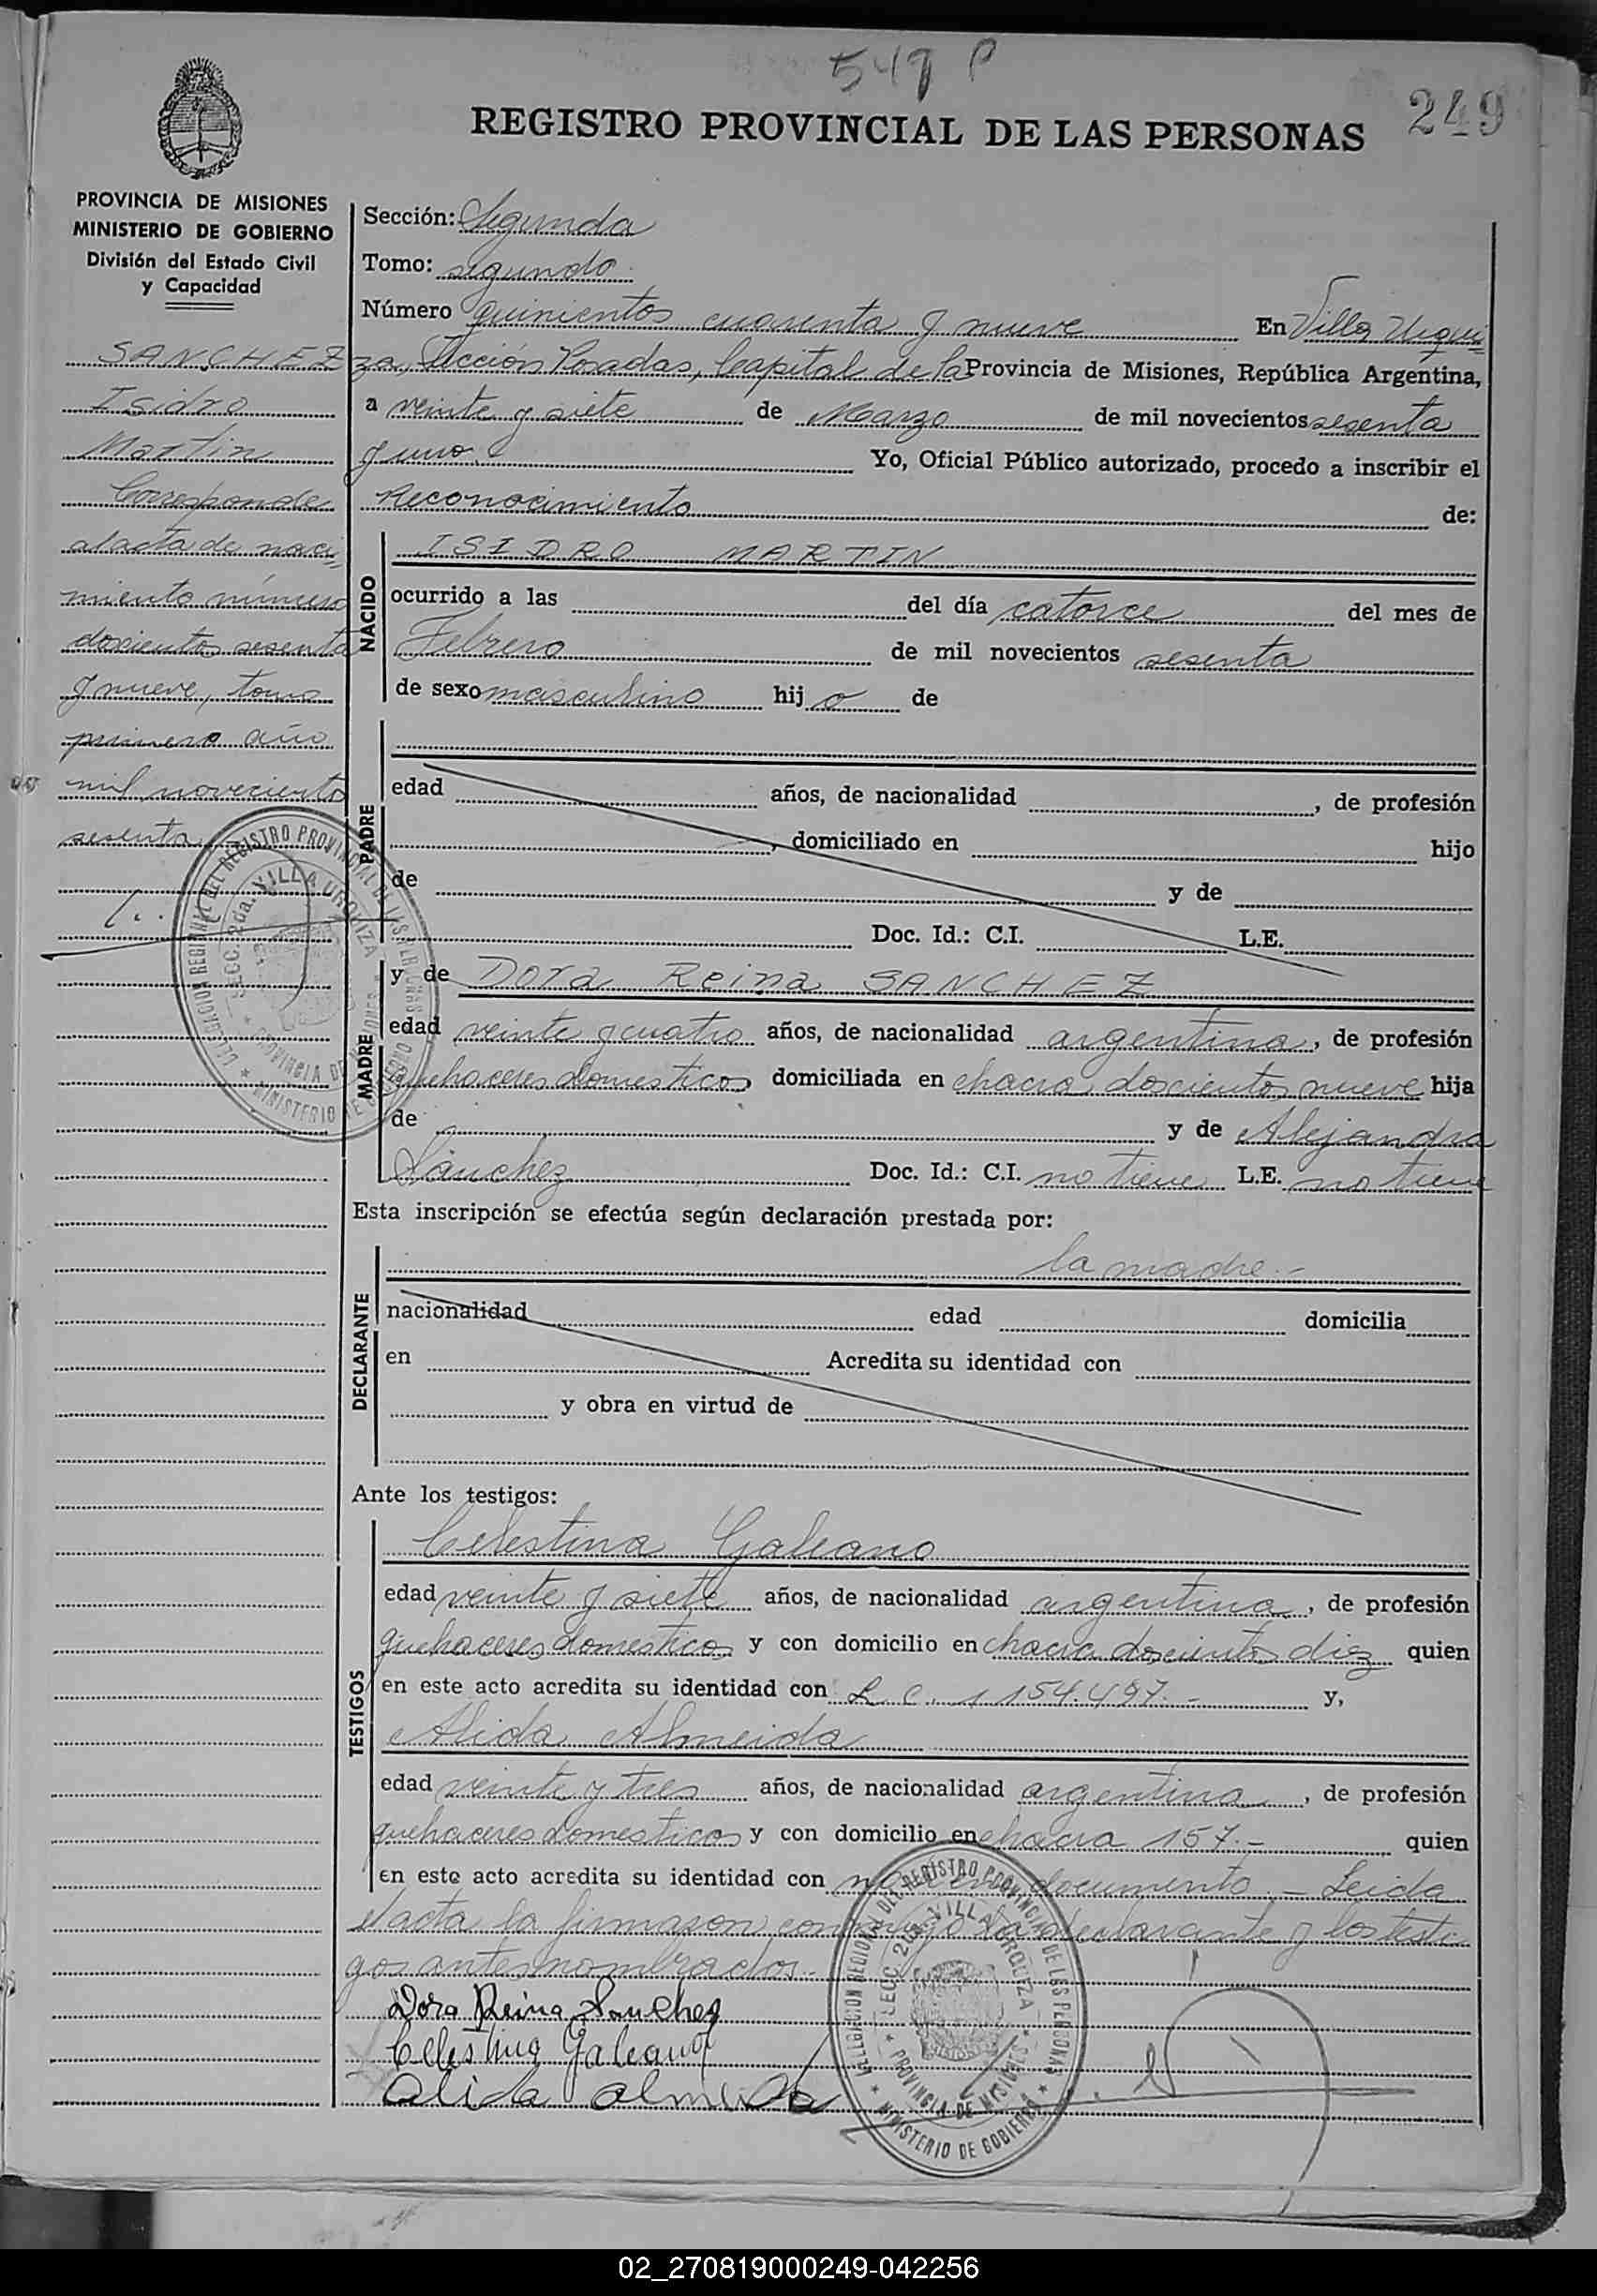 549 P
249
REGISTRO PROVINCIAL DE LAS PERSONAS
PROVINCIA DE MISIONES
MINISTERIO DE GOBIERNO
División del Estado Civil
y Capacidad
SANCHEZ
Isidro
Martin
Corresponde
al acta de naci
miento número
doscientos sesenta
y nueve, tomo
primero año
mil novecientos
sesenta
Sección: Segunda
Tomo: segundo
Número quinientos cuarenta y nueve En Villa Urqui
za, Sección Posadas, Capital de la Provincia de Misiones, República Argentina,
a veinte y siete de Marzo de mil novecientos sesenta
y uno Yo, Oficial Público autorizado, procedo a inscribir el
Reconocimiento de:
NACIDO
ISIDRO MARTIN
ocurrido a las del día catorce del mes de
Febrero de mil novecientos sesenta
de sexo masculino hijo de
PADRE
edad años, de nacionalidad , de profesión
, domiciliado en hijo
de y de
Doc. Id.: C.I. L.E.
MADRE
y de Dora Reina SANCHEZ
edad veinte y cuatro años, de nacionalidad argentina, de profesión
quehaceres domesticos domiciliada en chacra doscientos nueve hija
de y de Alejandra
Sánchez Doc. Id.: C.I. no tiene L.E. no tiene
Esta inscripción se efectúa según declaración prestada por:
DECLARANTE
la madre.-
nacionalidad edad domicilia
en Acredita su identidad con
y obra en virtud de
Ante los testigos:
TESTIGOS
Celestina Galeano
edad veinte y siete años, de nacionalidad argentina, de profesión
quehaceres domesticos y con domicilio en chacra doscientos diez quien
en este acto acredita su identidad con L. C. 1154.497.- y,
Alida Almeida
edad veinte y tres años, de nacionalidad argentina, de profesión
quehaceres domesticos y con domicilio en chacra 157.- quien
en este acto acredita su identidad con documento.- Leida
el acta la firmaron conmigo la declarante y los testi
gos antes nombrados.-
Dora Reina Sanchez
Celestina Galeano
Alida Almeida
DELEGACION REGIONAL DEL REGISTRO PROVINCIAL DE LAS PERSONAS
SECC. 2da. VILLA URQUIZA
PROVINCIA DE MISIONES
MINISTERIO DE GOBIERNO
DELEGACION REGIONAL DEL REGISTRO PROVINCIAL DE LAS PERSONAS
SECC. 2da. VILLA URQUIZA
PROVINCIA DE MISIONES
MINISTERIO DE GOBIERNO
02_270819000249-042256